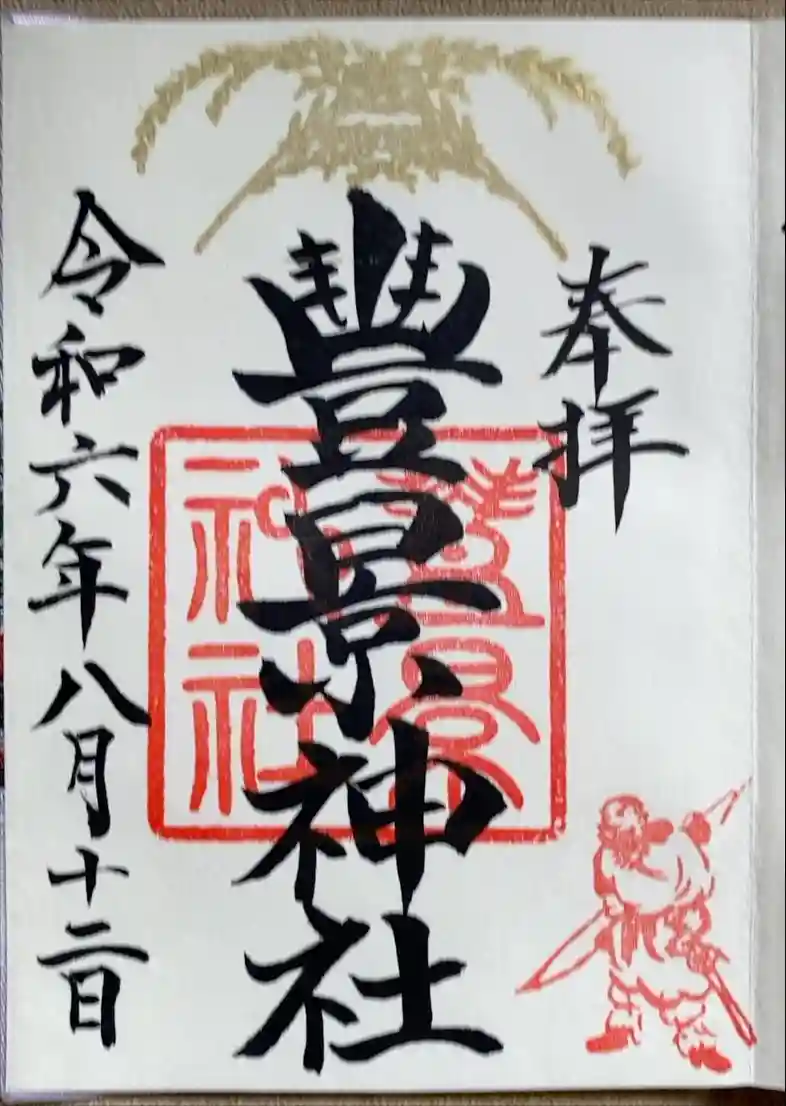 奉拝
豐景神社
豐景
神社
令和六年八月十二日